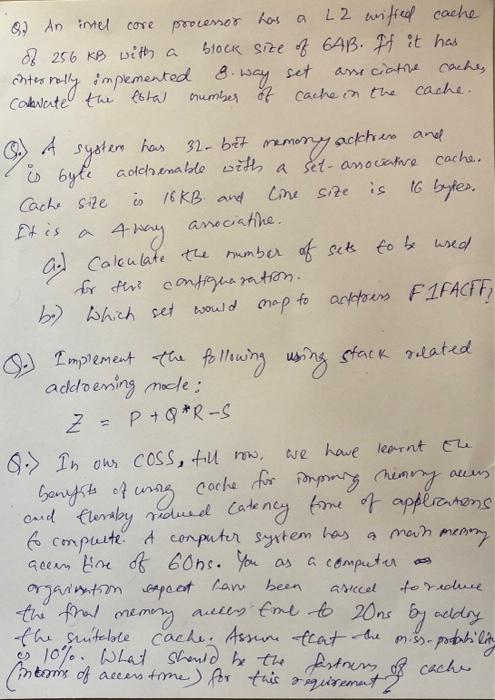 Q.) An intel core processor has a L2 unified cache
of 256 KB with a block size of 64B. If it has
internally implemented 8-way set associative caches,
Calculate the total number of cache in the cache.
Q.) A system has 32-bit memory address and
is byte addressable with a set-associative cache.
Cache size is 16KB and Line size is 16 bytes.
It is a 4-way associative.
a.) Calculate the number of sets to be used
for this configuration.
b.) Which set would map to address F1FACFF?
Q.) Implement the following using stack related
addressing mode:
Z = P + Q*R-S
Q.) In our COSS, till now, we have learnt the
benefits of using cache for improving memory access
and thereby reduced latency time of applications
to complete. A computer system has a main memory
access time of 60ns. You as a computer
organisation expert have been asked to reduce
the final memory access time to 20ns by adding
the suitable cache. Assume that the miss-probability
is 10%. What should be the fastness of cache
(interms of access time) for this requirement?